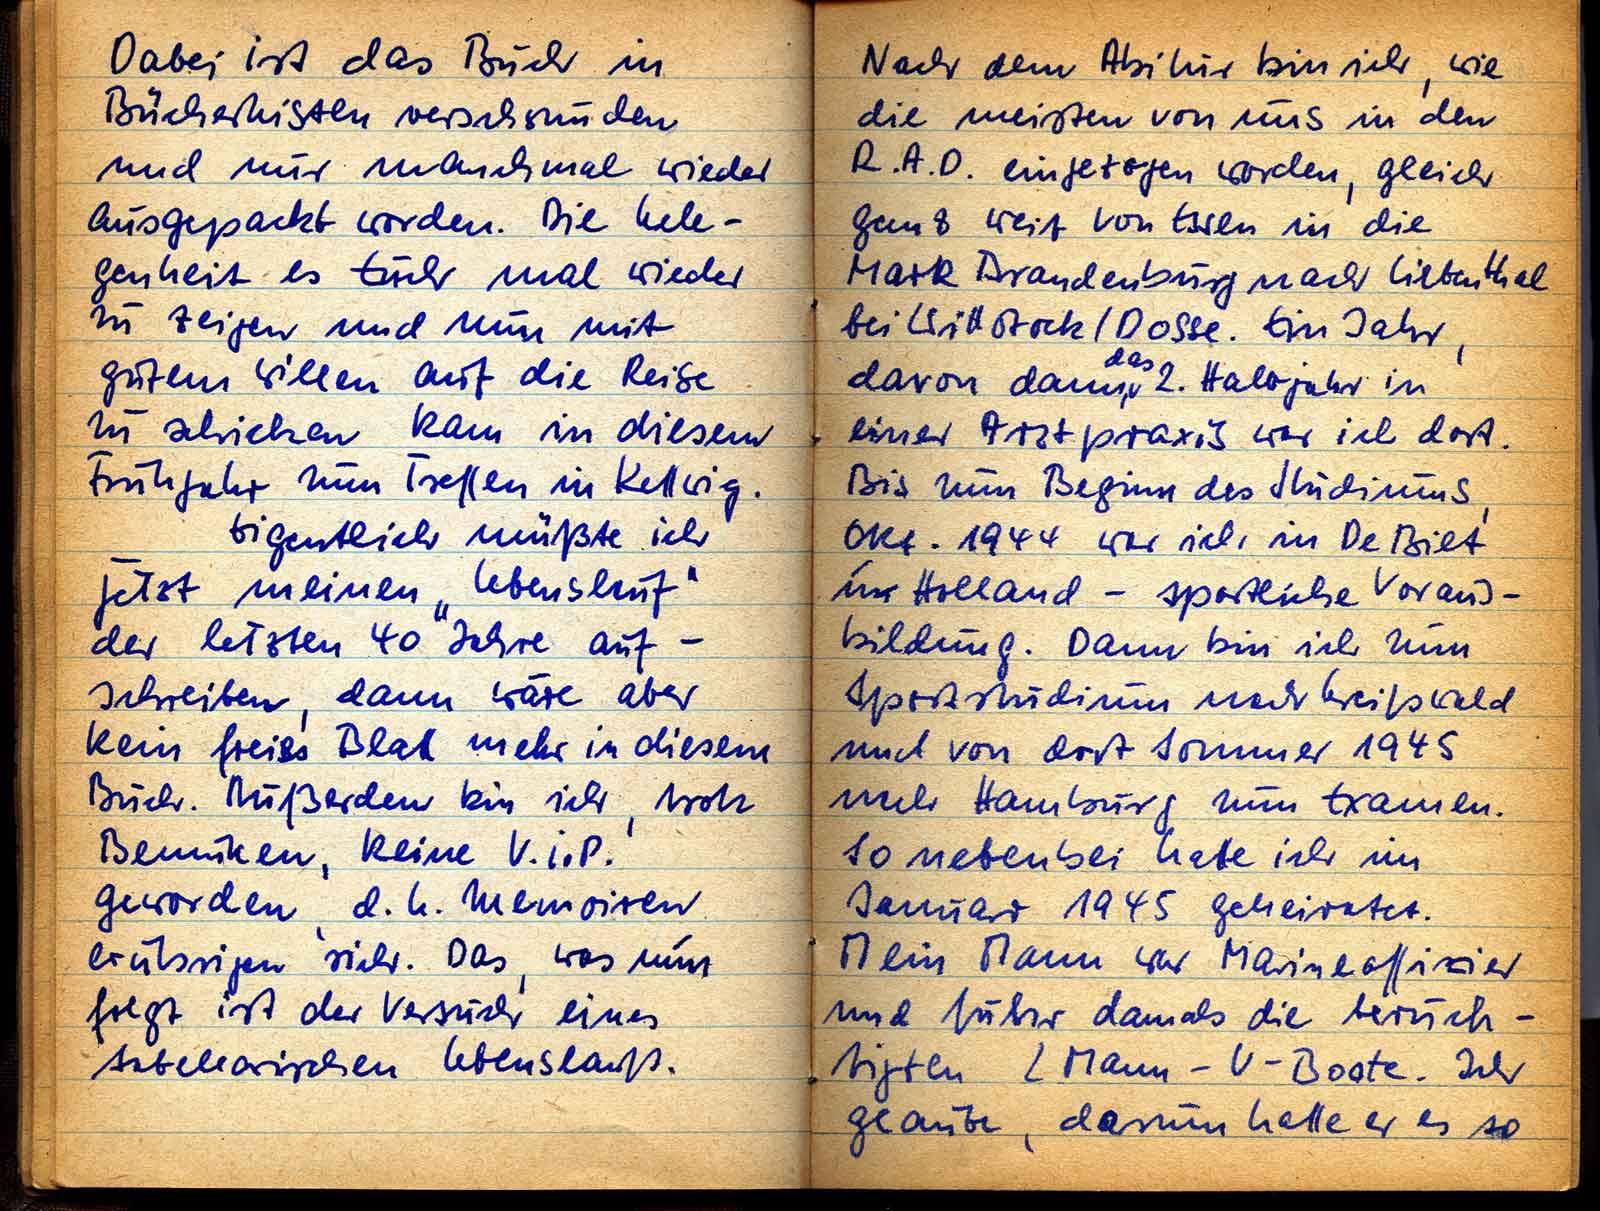 Dabei ist das Buch in
Bücherkisten verschwunden
und nur manchmal wieder
ausgepackt worden. Die Gele-
genheit es Euch mal wieder
zu zeigen und nun mit
gutem Willen auf die Reise
zu schicken kam in diesem
Frühjahr zum Treffen in Kettwig.
Eigentlich müßte ich
jetzt meinen „Lebenslauf"
der letzten 40 Jahre auf-
schreiben, dann wäre aber
kein freies Blatt mehr in diesem
Buch. Außerdem bin ich, trotz
Bemühen, keine V.i.P.
geworden, d.h. Memoiren
erübrigen sich. Das, was nun
folgt ist der Versuch eines
tabellarischen Lebenslaufs.
Nach dem Abitur bin ich, wie
die meisten von uns in den
R.A.D. eingezogen worden, gleich
ganz weit von Essen in die
Mark Brandenburg nach Liebenthal
bei Wittstock/Dosse. Ein Jahr,
davon dann, das 2. Halbjahr in
einer Arztpraxis war ich dort.
Bis zum Beginn des Studiums,
Okt. 1944 war ich in De Bilt
in Holland - sportliche Voraus-
bildung. Dann bin ich zum
Sportstudium nach Greifswald
und von dort Sommer 1945
nach Hamburg zum Examen.
So nebenbei habe ich im
Januar 1945 geheiratet.
Mein Mann war Marineoffizier
und fuhr damals die berüch-
tigten Mann-U-Boote. Ich
glaube, darum hatte er es so